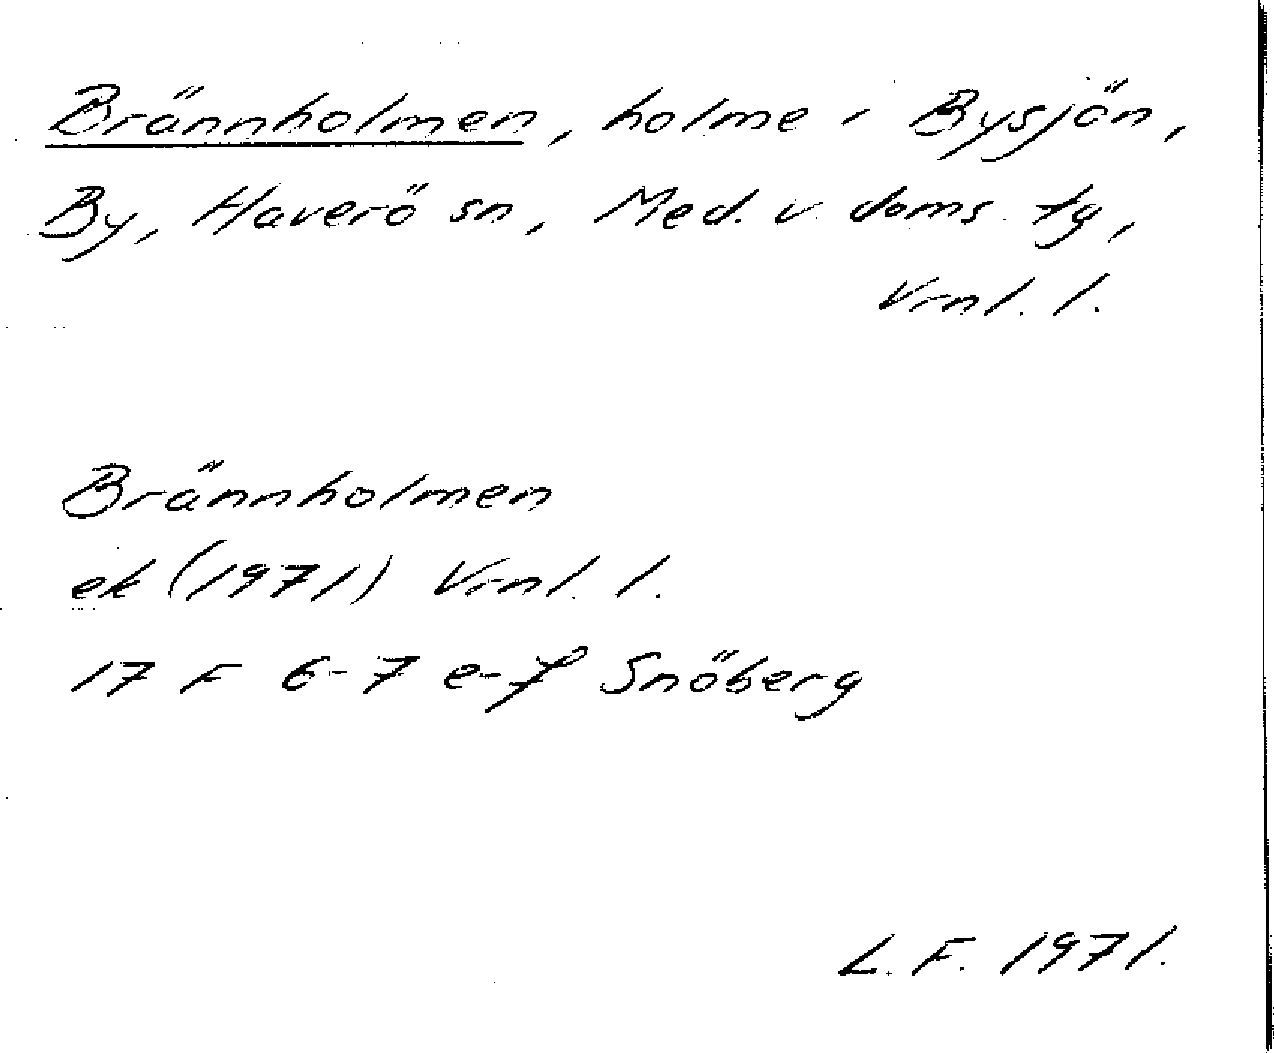 Brännholmen, holme i Bysjön,
By, Haverö sn, Med. v. doms. tg,
Vrnl. l.
Brännholmen
ek (1971) Vrnl. l.
17 F 6-7 e-f Snöberg
L. F. 1971.